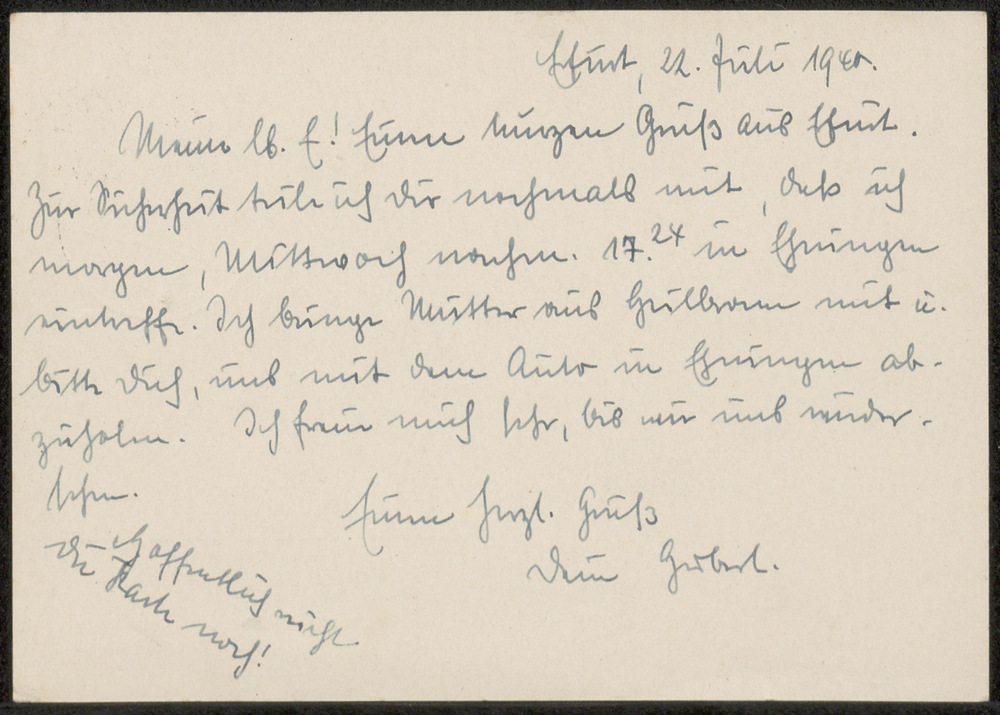 Erfurt, 22. Juli 1940.
Meine lb. E! Einen kurzen Gruß aus Erfurt.
Zur Sicherheit teile ich dir nochmals mit, daß ich
morgen, Mittwoch nachm. 17.24 in Ehningen
eintreffe. Ich bringe Mutter aus Heilbronn mit u.
bitte Dich, uns mit dem Auto in Ehningen ab-
zuholen. Ich freue mich sehr, bis wir uns wieder-
sehen.
Einen herzl. Gruß
Dein Herbert.
Hoffentlich reicht
die Karte noch!